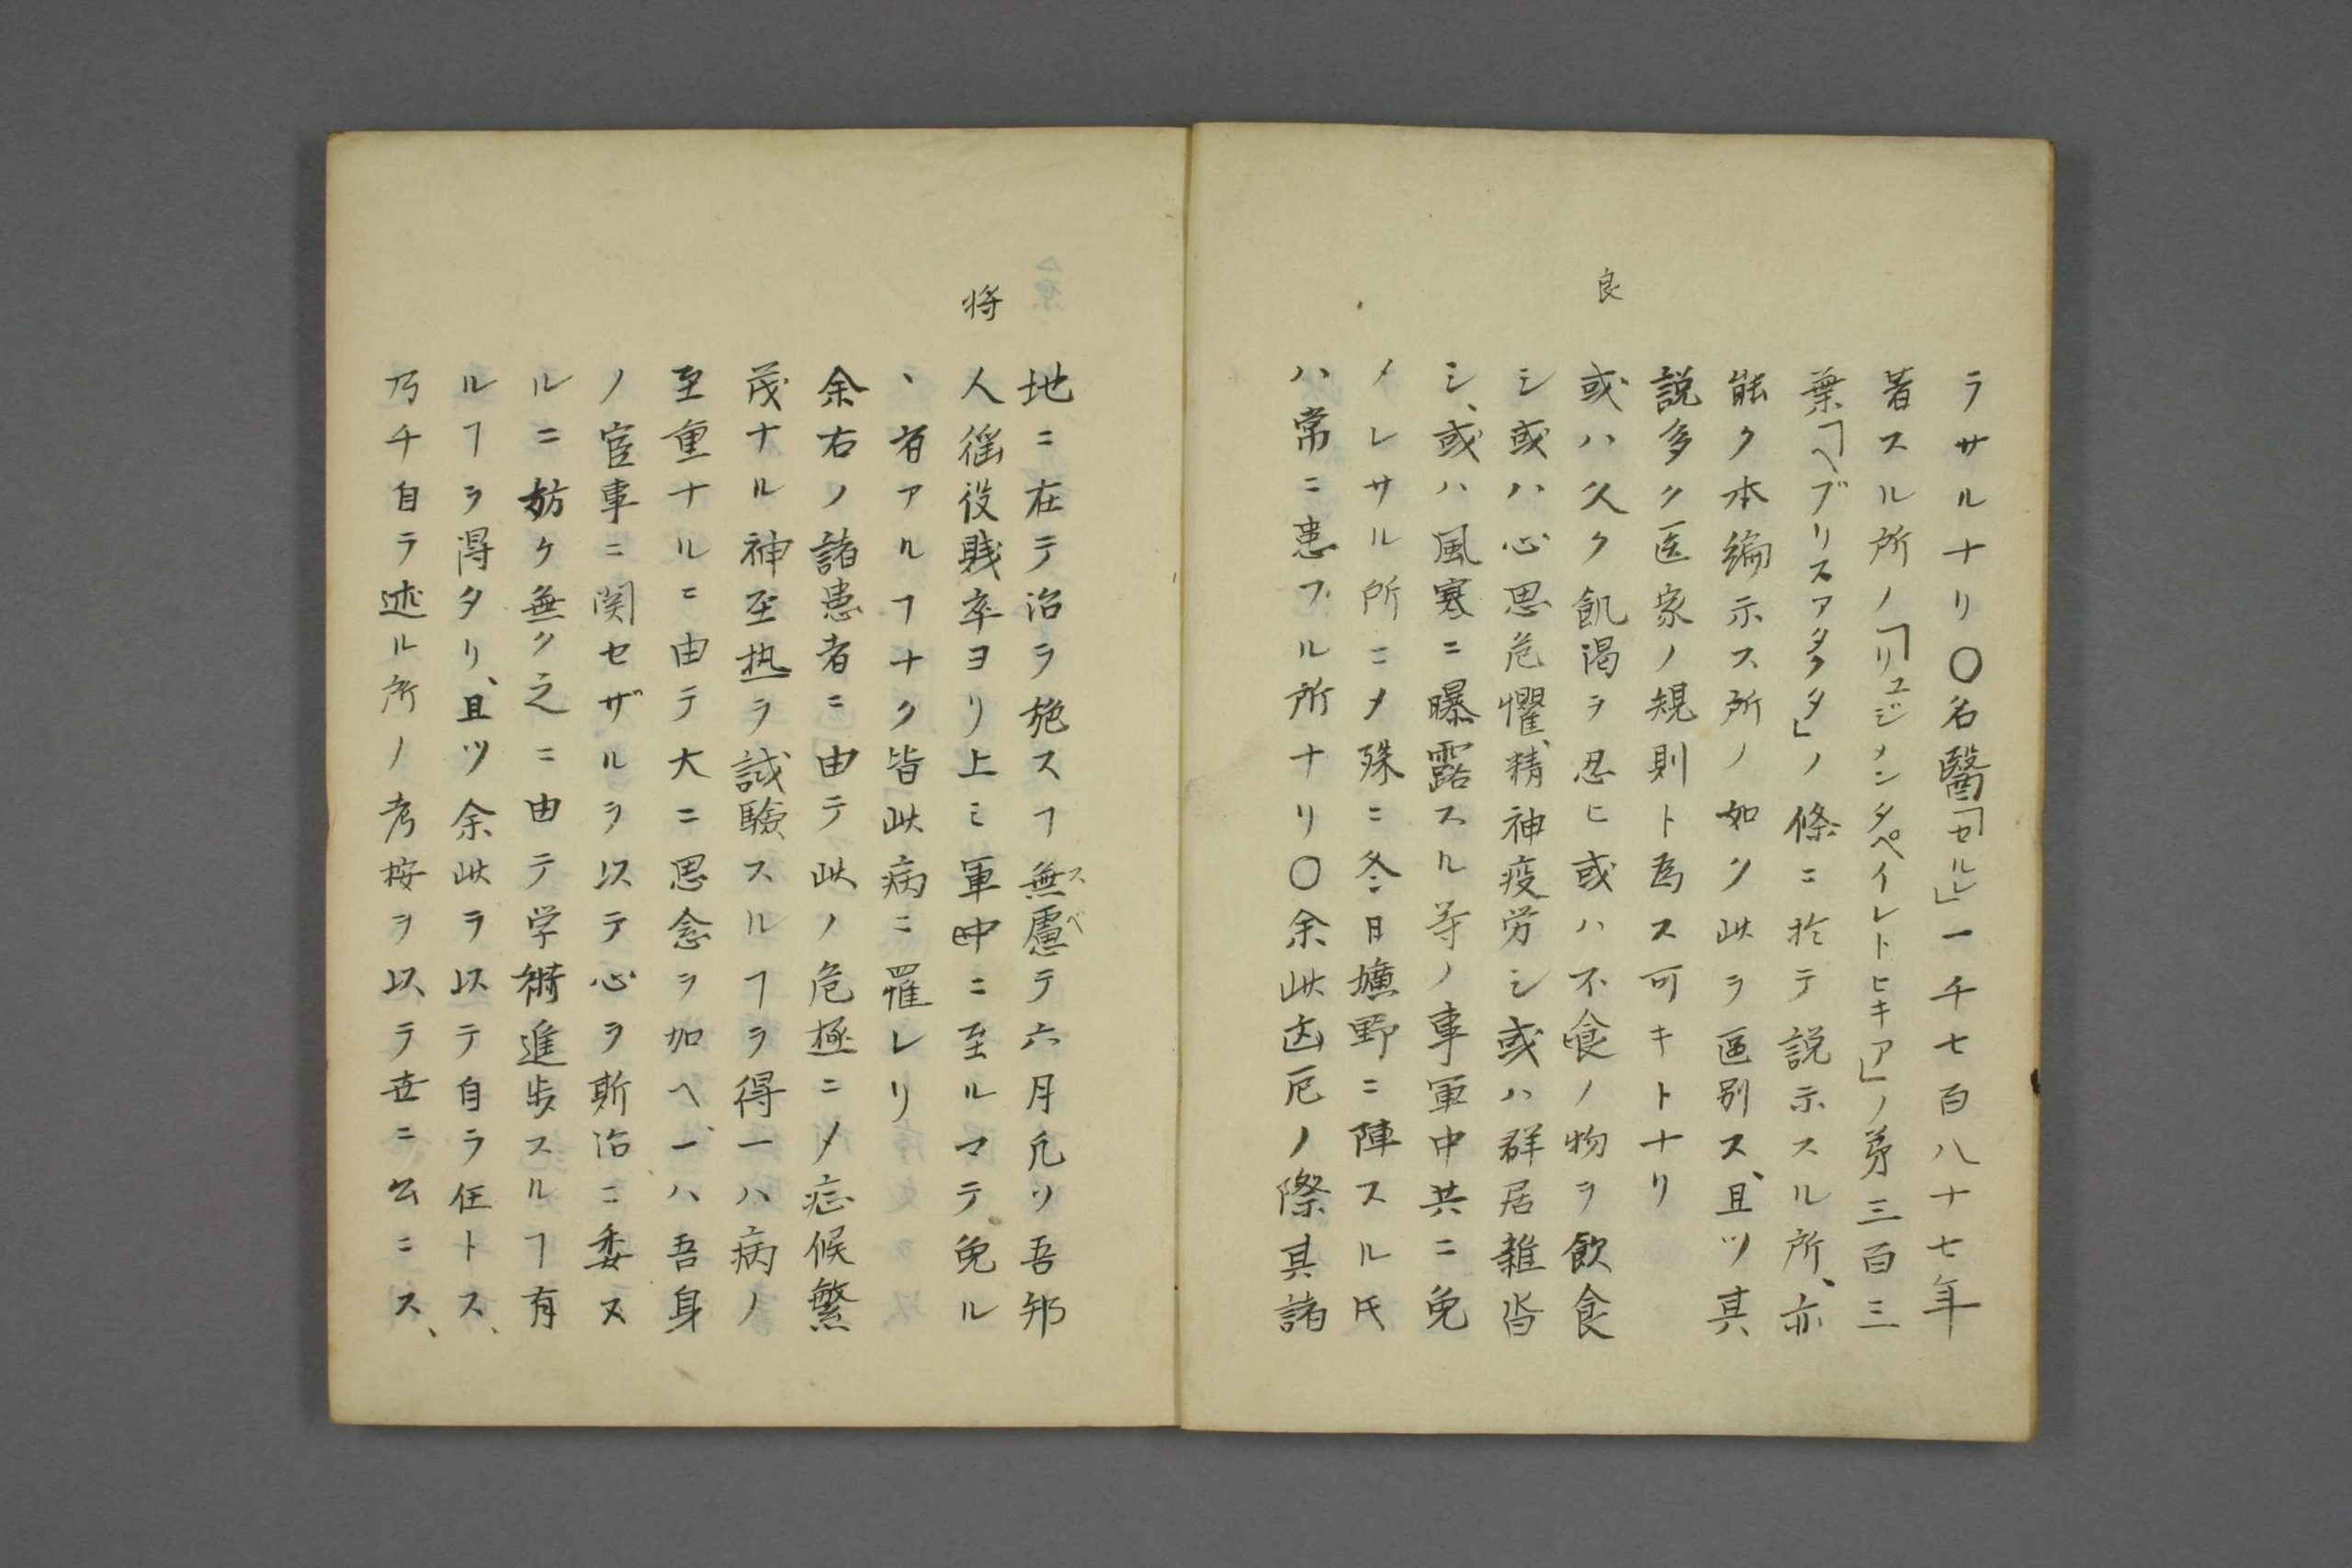 ラサルナリ〇名醫「セルレ」一千七百八十七年
著スル所ノ「リュジメンタペイレトヒキア」ノ第三百三
葉「ヘブリスアタクタ」ノ條ニ於テ説示スル所、亦
能ク本編示ス所ノ如ク此ヲ區別ス、且ツ其
説多ク医家ノ規則ト為ス可キトナリ
良
或ハ久ク飢渇ヲ忍ヒ或ハ不食ノ物ヲ飲食
シ或ハ心思危懼、精神疲労シ或ハ群居雑沓
シ、或ハ風寒ニ曝露スル等ノ事軍中共ニ免
メレサル所ニメ殊ニ冬日壙野ニ陣スル氏
ハ常ニ患フル所ナリ〇余此凶厄ノ際其諸
地ニ在テ治ヲ施スヿ無慮スベテ六月凢ソ吾邦
将
人徭役賎卒ヨリ上ミ軍中ニ至ルマテ免ル
ヽ者アルヿナク皆此病ニ罹レリ
余右ノ諸患者ニ由テ此ノ危極ニメ症候繁
茂ナル神至热ヲ試驗スルヿヲ得一ハ病ノ
至重ナルニ由テ大ニ思念ヲ加ヘ、一ハ吾身
ノ官事ニ関セザルヲ以テ心ヲ斯治ニ委ヌ
ルニ妨ケ無ク之ニ由テ学術進歩スルヿ有
ルヿヲ得タリ、且ツ余此ヲ以テ自ラ任トス、
乃チ自ラ述ル所ノ考按ヲ以テ世ニ公ニス、